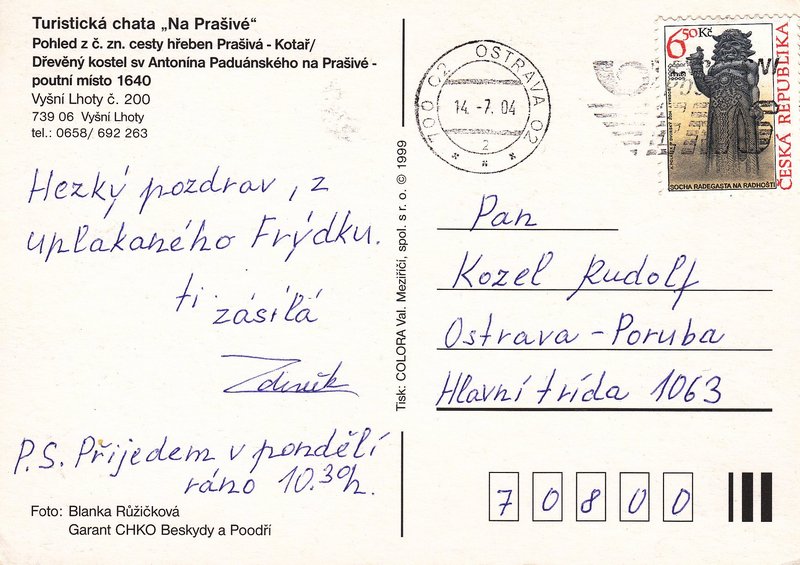 Turistická chata „Na Prašivé“
Pohled z č. zn. cesty hřeben Prašivá - Kotař/
Dřevěný kostel sv Antonína Paduánského na Prašivé -
poutní místo 1640
Vyšní Lhoty č. 200
739 06 Vyšní Lhoty
tel.: 0658/ 692 263
Hezký pozdrav, z
uplakaného Frýdku.
ti zásílá
Zdeněk
P.S. Přijedem v pondělí
ráno 10.30h.
Foto: Blanka Růžičková
Garant CHKO Beskydy a Poodří
Tisk: COLORA Val. Meziříčí, spol. s r. o. © 1999
700 02 OSTRAVA 02
14.-7.04
2
6,50 Kč
ČESKÁ REPUBLIKA
SOCHA RADEGASTA NA RADHOŠTI
Pan
Kozel Rudolf
Ostrava - Poruba
Hlavní trída 1063
70800